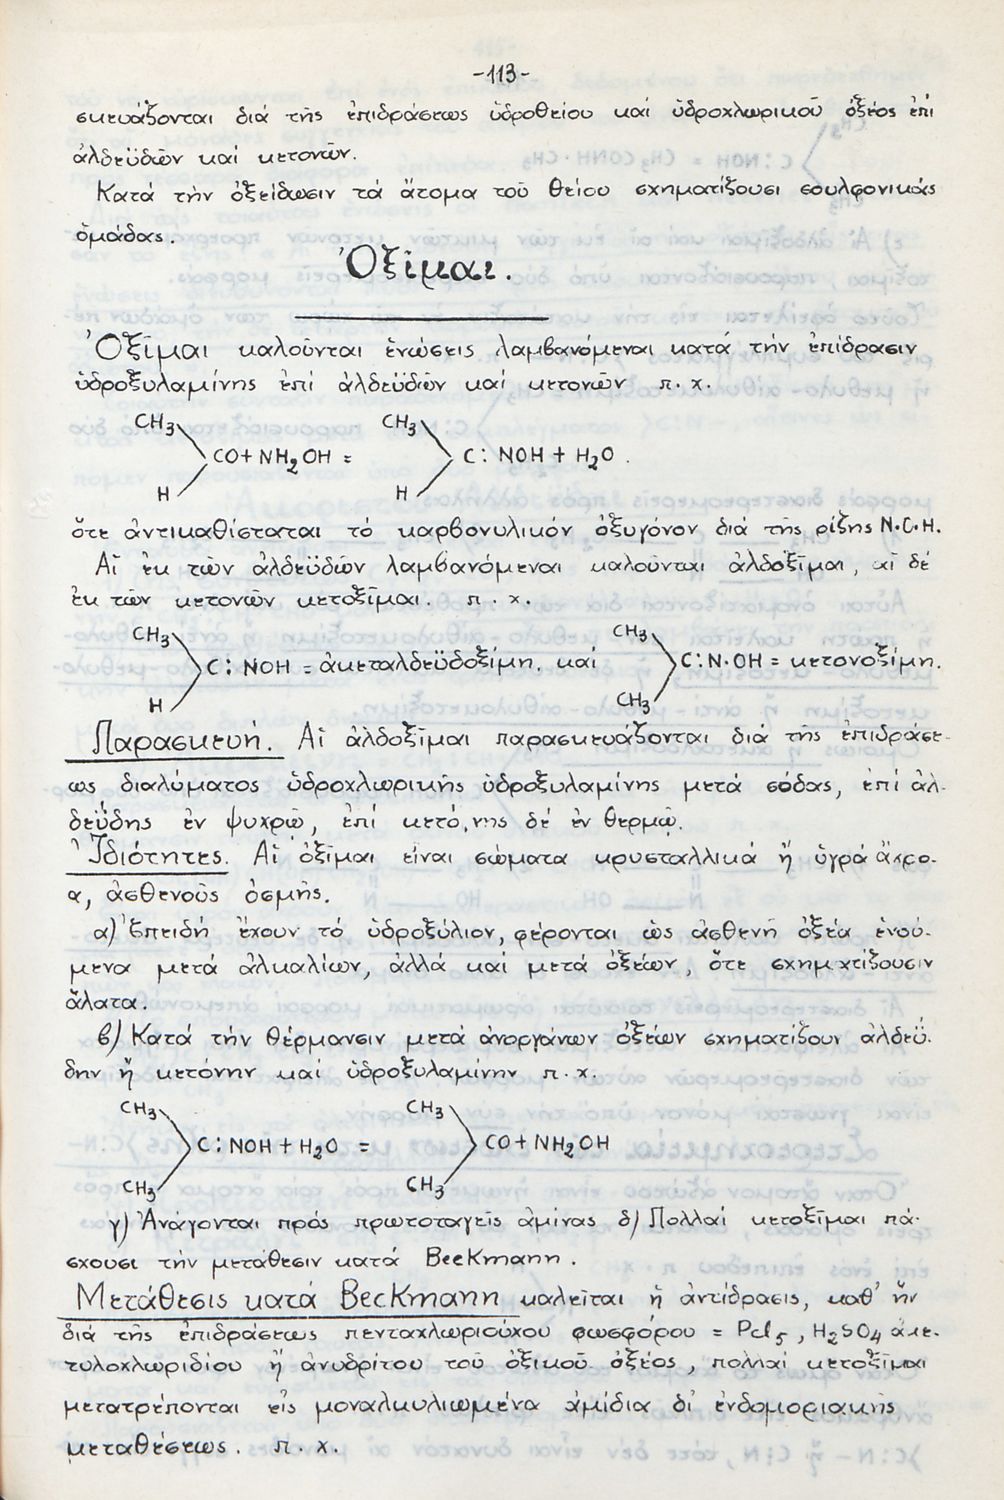 -113-
σκευάζονται διά τῆς ἐπιδράσεως ὑδροθείου καί ὑδροχλωρικοῦ ὀξέος ἐπί
ἀλδεϋδῶν καί κετονῶν.
Κατά τήν ὀξείδωσιν τά ἄτομα τοῦ θείου σχηματίζουσι σουλφονικάς
ὁμάδας.
Ὀξῖμαι.
Ὀξῖμαι καλοῦνται ἑνώσεις λαμβανόμεναι κατά τήν ἐπίδρασιν
ὑδροξυλαμίνης ἐπί ἀλδεϋδῶν καί κετονῶν π.χ.
CH3 CH3
CO+NH2OH = C:NOH+H2O.
H H
ὅτε ἀντικαθίσταται τό καρβονυλικόν ὀξυγόνον διά τῆς ρίζης N.C.H.
Αἱ ἐκ τῶν ἀλδεϋδῶν λαμβανόμεναι καλοῦνται ἀλδοξῖμαι, αἱ δέ
ἐκ τῶν κετονῶν κετοξῖμαι. π.χ.
CH3 CH3
C:NOH = ἀκεταλδεϋδοξίμη. καί C:N·OH = κετονοξίμη.
H CH3
Παρασκευή. Αἱ ἀλδοξῖμαι παρασκευάζονται διά τῆς ἐπιδράσε-
ως διαλύματος ὑδροχλωρικῆς ὑδροξυλαμίνης μετά σόδας, ἐπί ἀλ-
δεΰδης ἐν ψυχρῷ, ἐπί κετόνης δέ ἐν θερμῷ.
Ἰδιότητες. Αἱ ὀξῖμαι εἶναι σώματα κρυσταλλικά ἤ ὑγρά ἄχρο-
α, ἀσθενοῦς ὀσμῆς.
α) Ἐπειδή ἔχουν τό ὑδροξύλιον, φέρονται ὡς ἀσθενῆ ὀξέα ἑνού-
μενα μετά ἀλκαλίων, ἀλλά καί μετά ὀξέων, ὅτε σχηματίζουσιν
ἅλατα.
β) Κατά τήν θέρμανσιν μετά ἀνοργάνων ὀξέων σχηματίζουν ἀλδεΰ-
δην ἤ κετόνην καί ὑδροξυλαμίνην π.χ.
CH3 CH3
C:NOH+H2O = CO+NH2OH
CH3 CH3
γ) Ἀνάγονται πρός πρωτοταγεῖς ἀμίνας δ) Πολλαί κετοξῖμαι πά-
σχουσι τήν μετάθεσιν κατά BecKmann.
Μετάθεσις κατά BecKmann καλεῖται ἡ ἀντίδρασις, καθ' ἥν
διά τῆς ἐπιδράσεως πενταχλωριούχου φωσφόρου = Pcl5, H2SO4 ἀκε-
τυλοχλωριδίου ἤ ἀνυδρίτου τοῦ ὀξικοῦ ὀξέος, πολλαί κετοξῖμαι
μετατρέπονται εἰς μοναλκυλιωμένα ἀμίδια δι' ἐνδομοριακῆς
μεταθέσεως. π.χ.